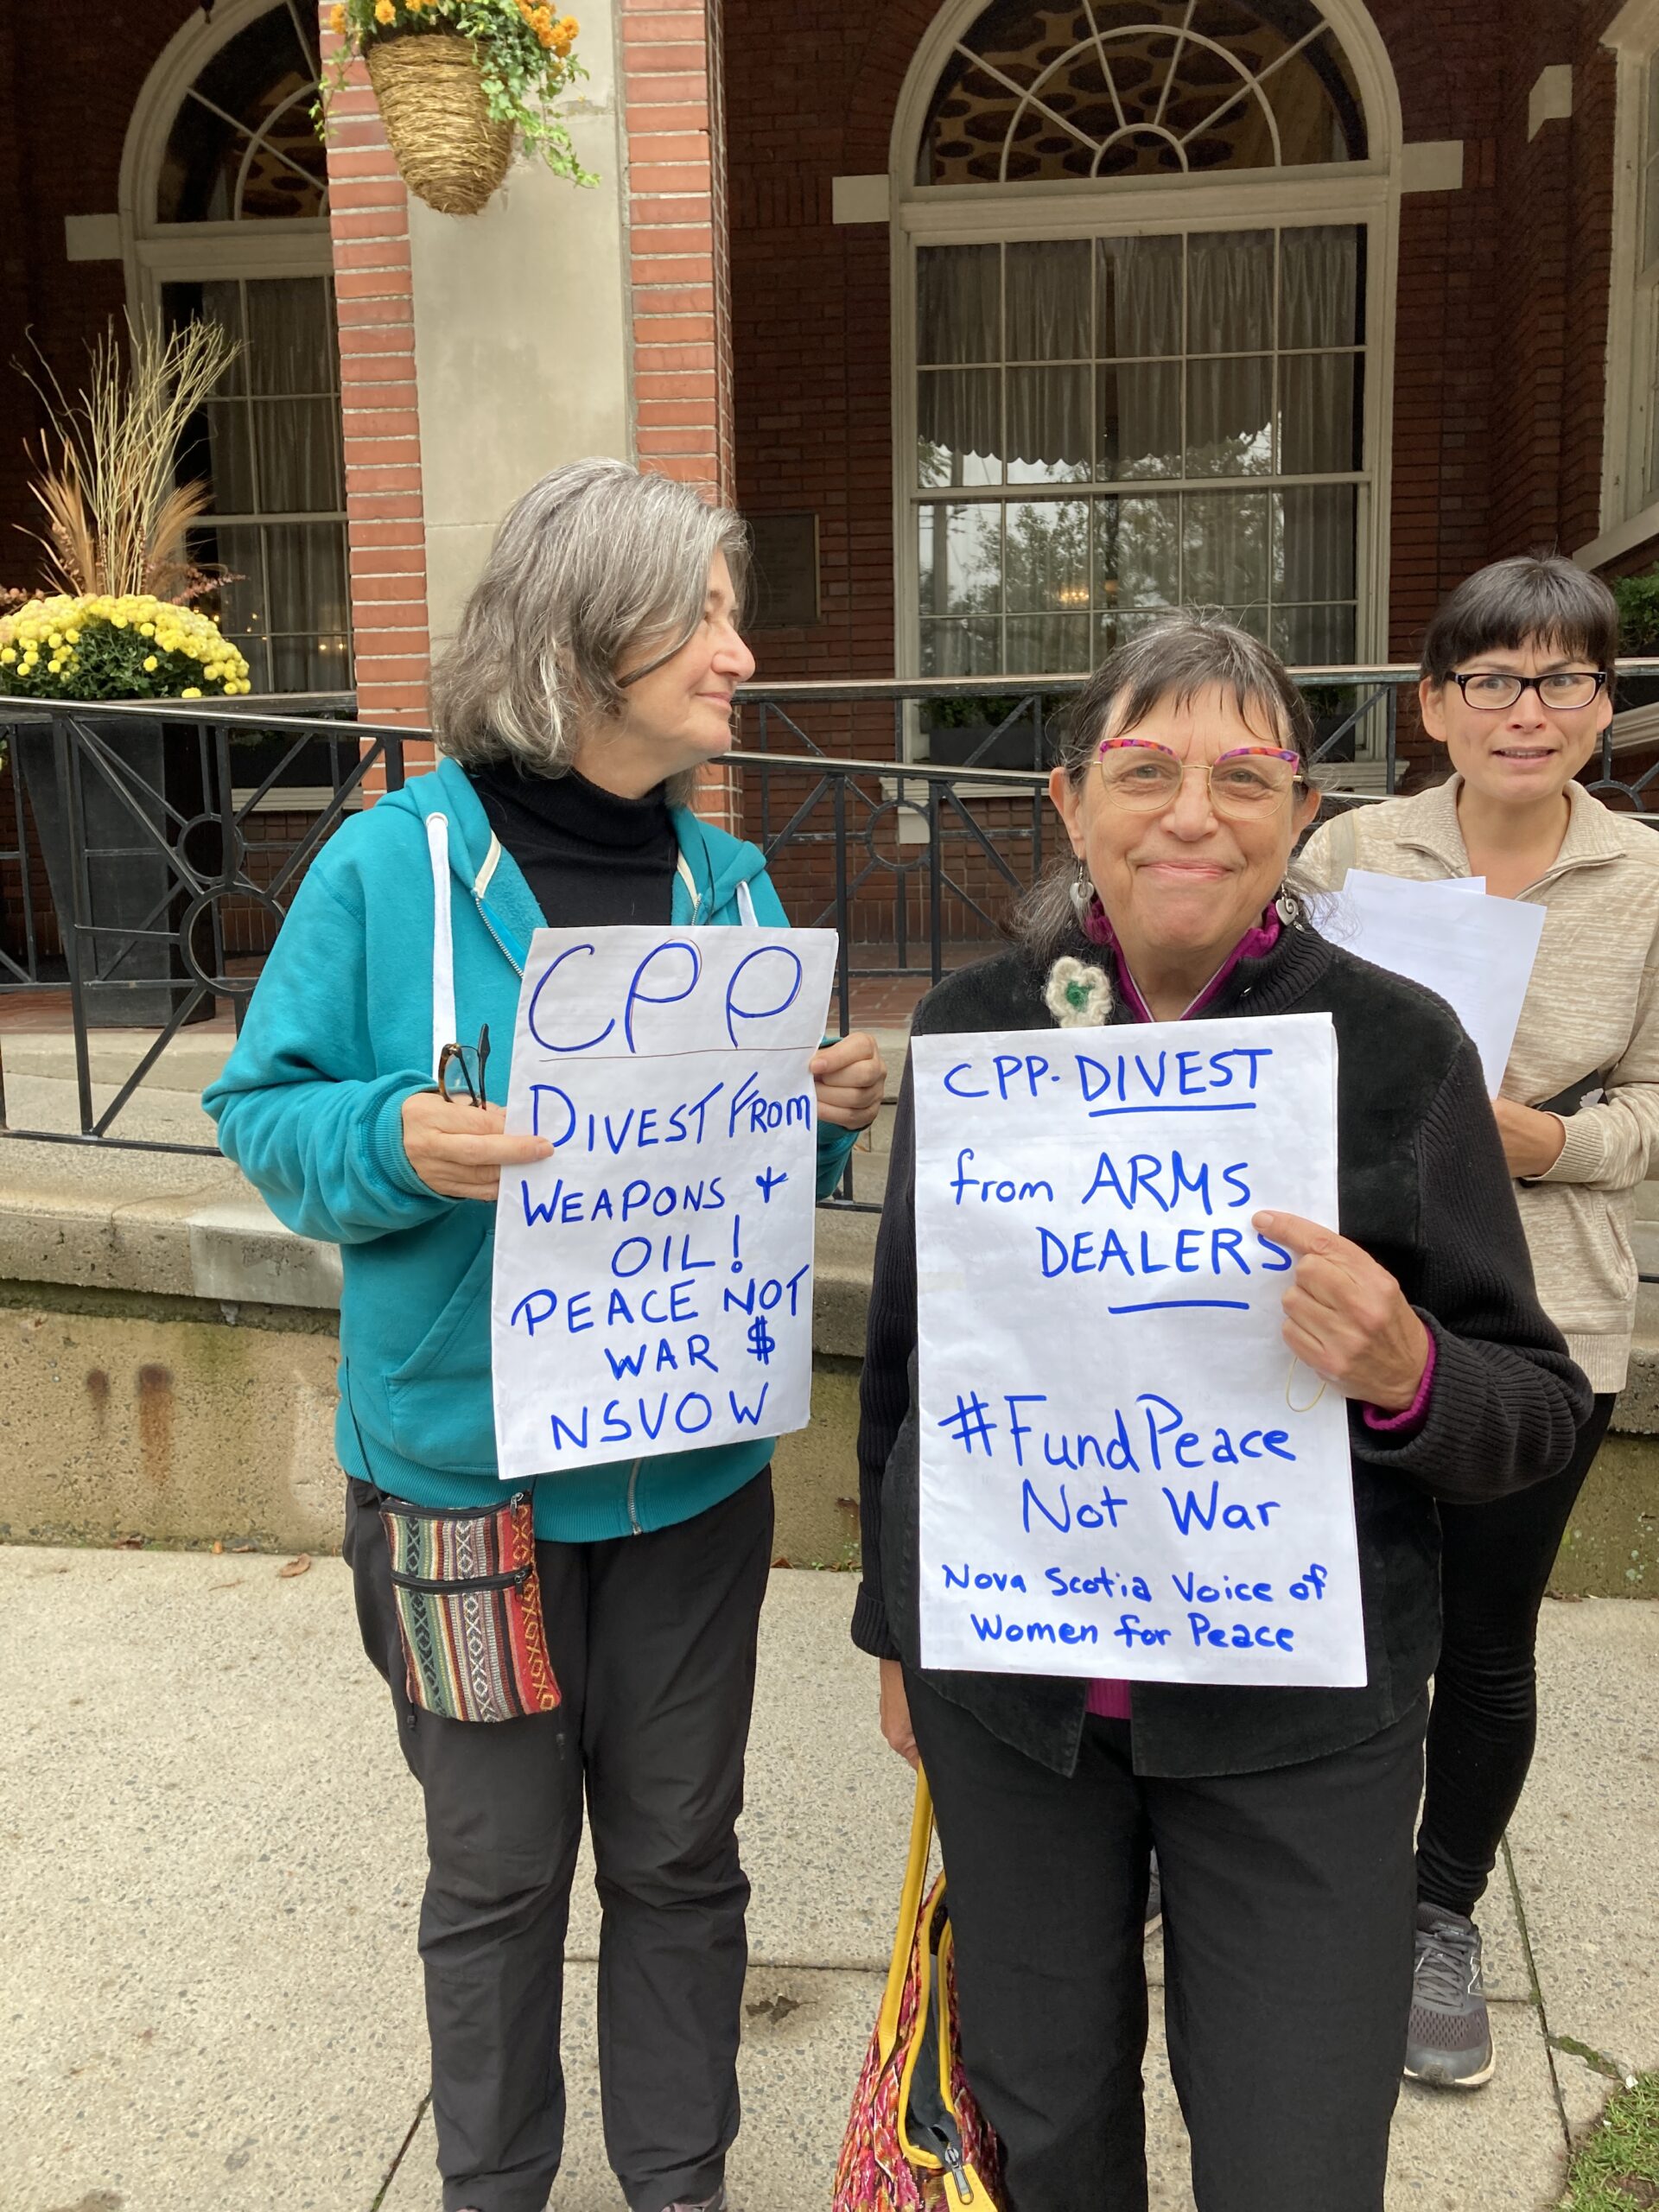 CPP
DIVEST FROM
WEAPONS +
OIL!
PEACE NOT
WAR $
NSVOW
CPP. DIVEST
from ARMS
DEALERS
#FundPeace
Not War
Nova Scotia Voice of
Women for Peace